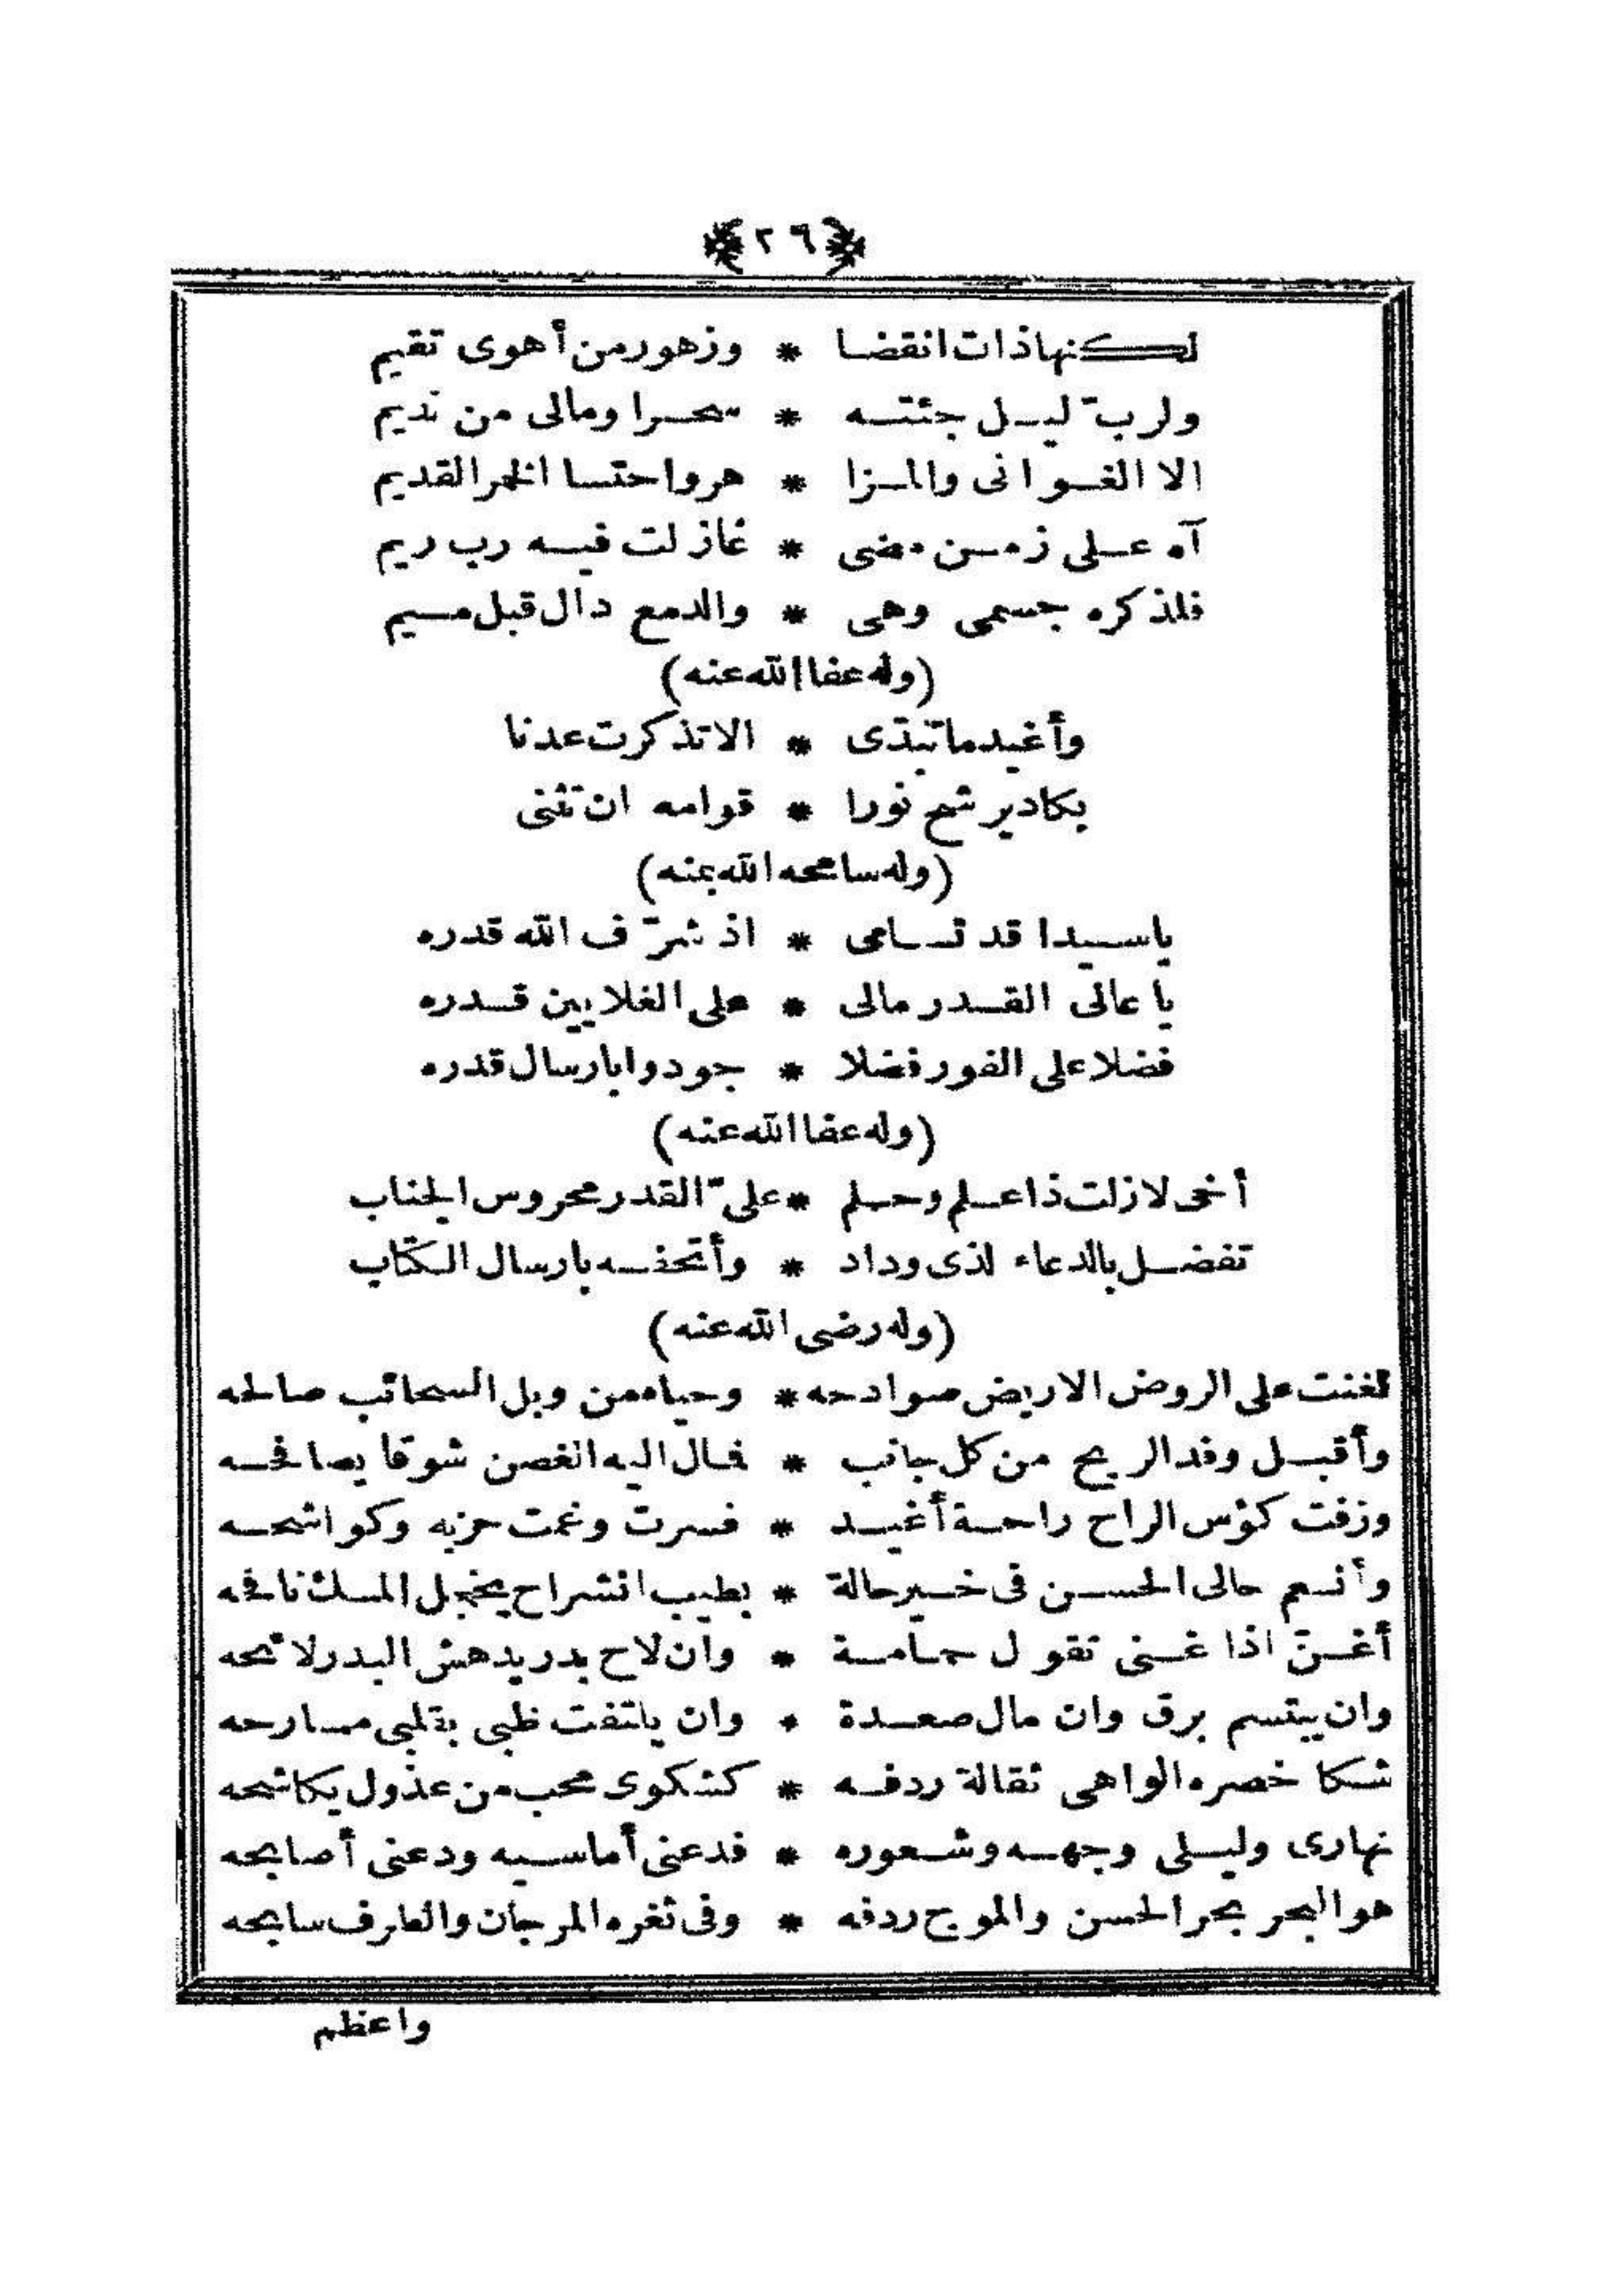 ﴿٢٦﴾
لكنها ذات انقضا * وزهور من أهوى تقيم
ولربّ ليل جئته * سحرا ومالى من نديم
الا الغوانى والمزا * هر واحتسا الخمر القديم
آه على زمن مضى * غازلت فيه رب ريم
فلذكره جسمى وهى * والدمع دال قبل ميم
(وله عفا الله عنه)
وأغيد ما تبدّى * الا تذكرت عدنا
يكاد يرشح نورا * قوامه ان تثنى
(وله سامحه الله بمنه)
يا سيدا قد تسامى * اذ شرّف الله قدره
يا عالى القدر مالى * على الغلايين قدره
فضلا على الفور فضلا * جودوا بارسال قدره
(وله عفا الله عنه)
أخى لازلت ذا علم وحلم * علىّ القدر محروس الجناب
تفضل بالدعاء لذى وداد * وأتحفه بارسال الكتاب
(وله رضى الله عنه)
تغنت على الروض الاريض صوادحه * وحياه من وبل السحائب صالحه
وأقبل وفد الريح من كل جانب * فمال اليه الغصن شوقا يصافحه
وزفت كؤس الراح راحة أغيد * فسرت وغمت حزبه وكواشحه
وأنعم حالى الحسن فى خير حالة * بطيب انشراح يخجل المسك نافحه
أغنّ اذا غنى تقول حمامة * وان لاح بدر يدهش البدر لائحه
وان يبتسم برق وان مال صعدة * وان يلتفت ظبى بقلبى مسارحه
شكا خصره الواهى ثقالة ردفه * كشكوى محب من عذول يكاشحه
نهارى وليلى وجهه وشعوره * فدعنى أماسيه ودعنى أصابحه
هو البحر بحر الحسن والموج ردفه * وفى ثغره المرجان والعارف سابحه
واعظم